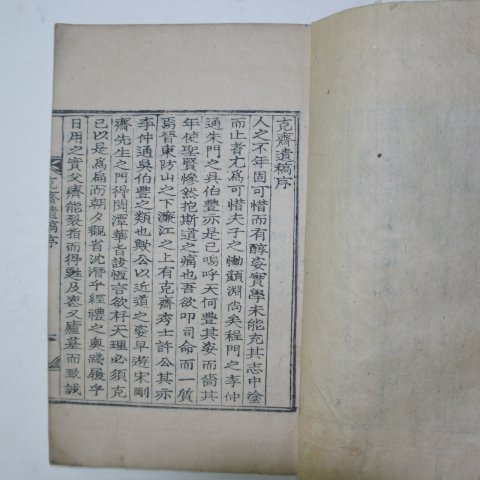 克齋遺稿序
人之不年固可惜而有醇姿實學未能充其志中塗
而止者尤爲可惜夫子之慟顏淵尚矣程門之李仲
通朱門之吳伯豐亦是已嗚呼天何豊其姿而嗇其
年使聖賢慘然抱斯道之痛也吾欲叩司命而一質
焉晉東防山之下濂江之上有克齋秀士許公其亦
李仲通吳伯豐之類也歟公以近道之姿早遊宋剛
齋先生之門得聞潭華旨訣恆言欲存天理必須克
己以是爲扁而朝夕觀省沈潛乎經禮之奧踐履乎
日用之實父癠能裂指而得甦及喪又廬墓而致誠
克齋遺稿序